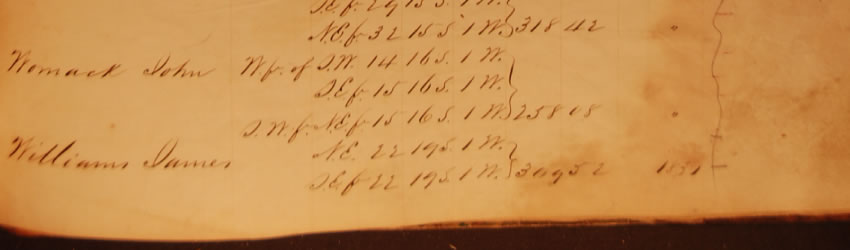 S.E.fr 29 15 S. 1 W.
N.E.fr 32 15 S 1 W. 318 42
Womack John W fr. of S.W. 14 16 S. 1 W.
S.E.fr 15 16 S. 1 W.
S.W fr. N.E.fr 15 16 S. 1 W. 258 08
Williams James N.E. 22 19 S. 1 W.
S.E.fr 22 19 S. 1 W. 52